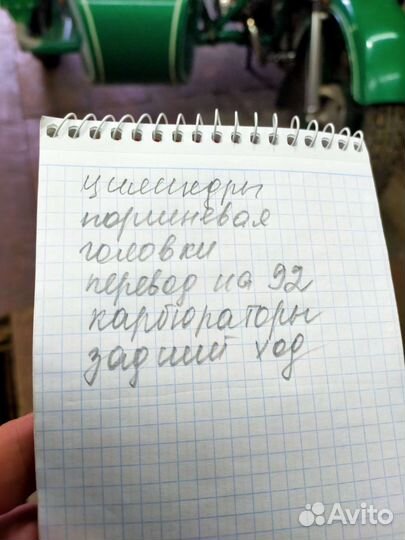 цилиндры
поршневая
головки
перевод на 92
карбюраторы
задний ход
Avito